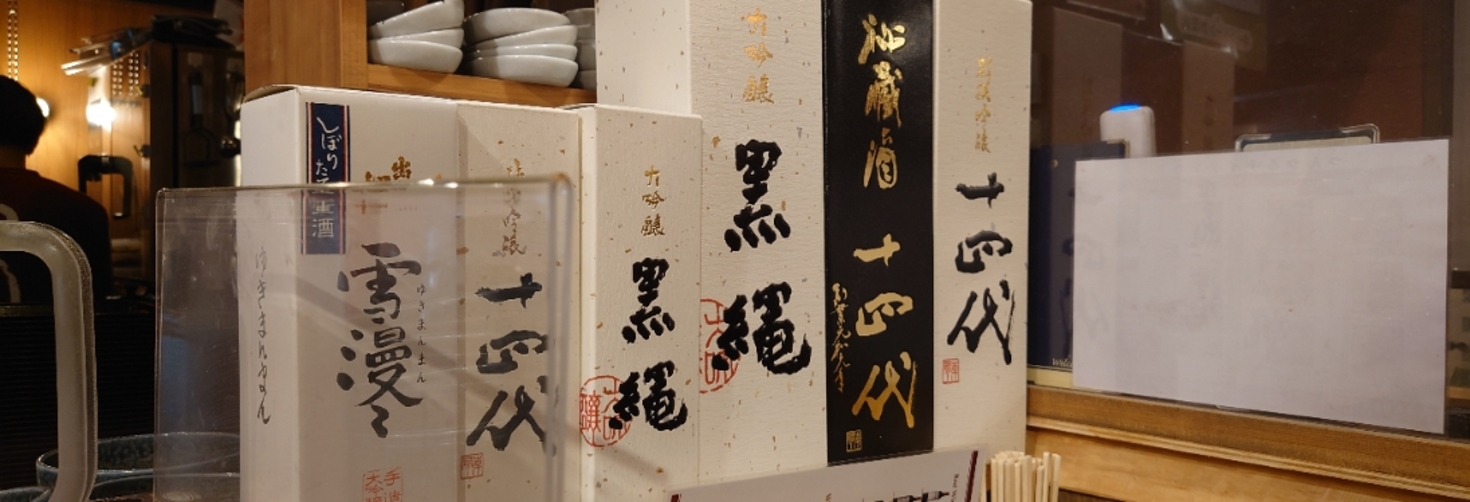 しぼりたて生酒
ゆきまんまん
雪漫々
ゆきまんまん
十四代
大吟醸
黒縄
大吟醸
黒縄
秘蔵酒
十四代
十四代